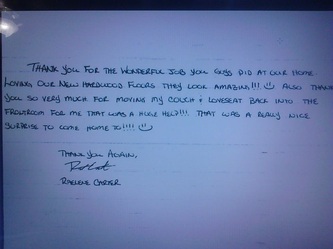 Thank you for the wonderful job you guys did at our home.
Loving our new hardwood floors they look amazing!!! Also thank
you so very much for moving my couch & loveseat back into the
frontroom for me that was a huge help!!! That was a really nice
surprise to come home to!!!!
Thank you again,
Raelene Carter